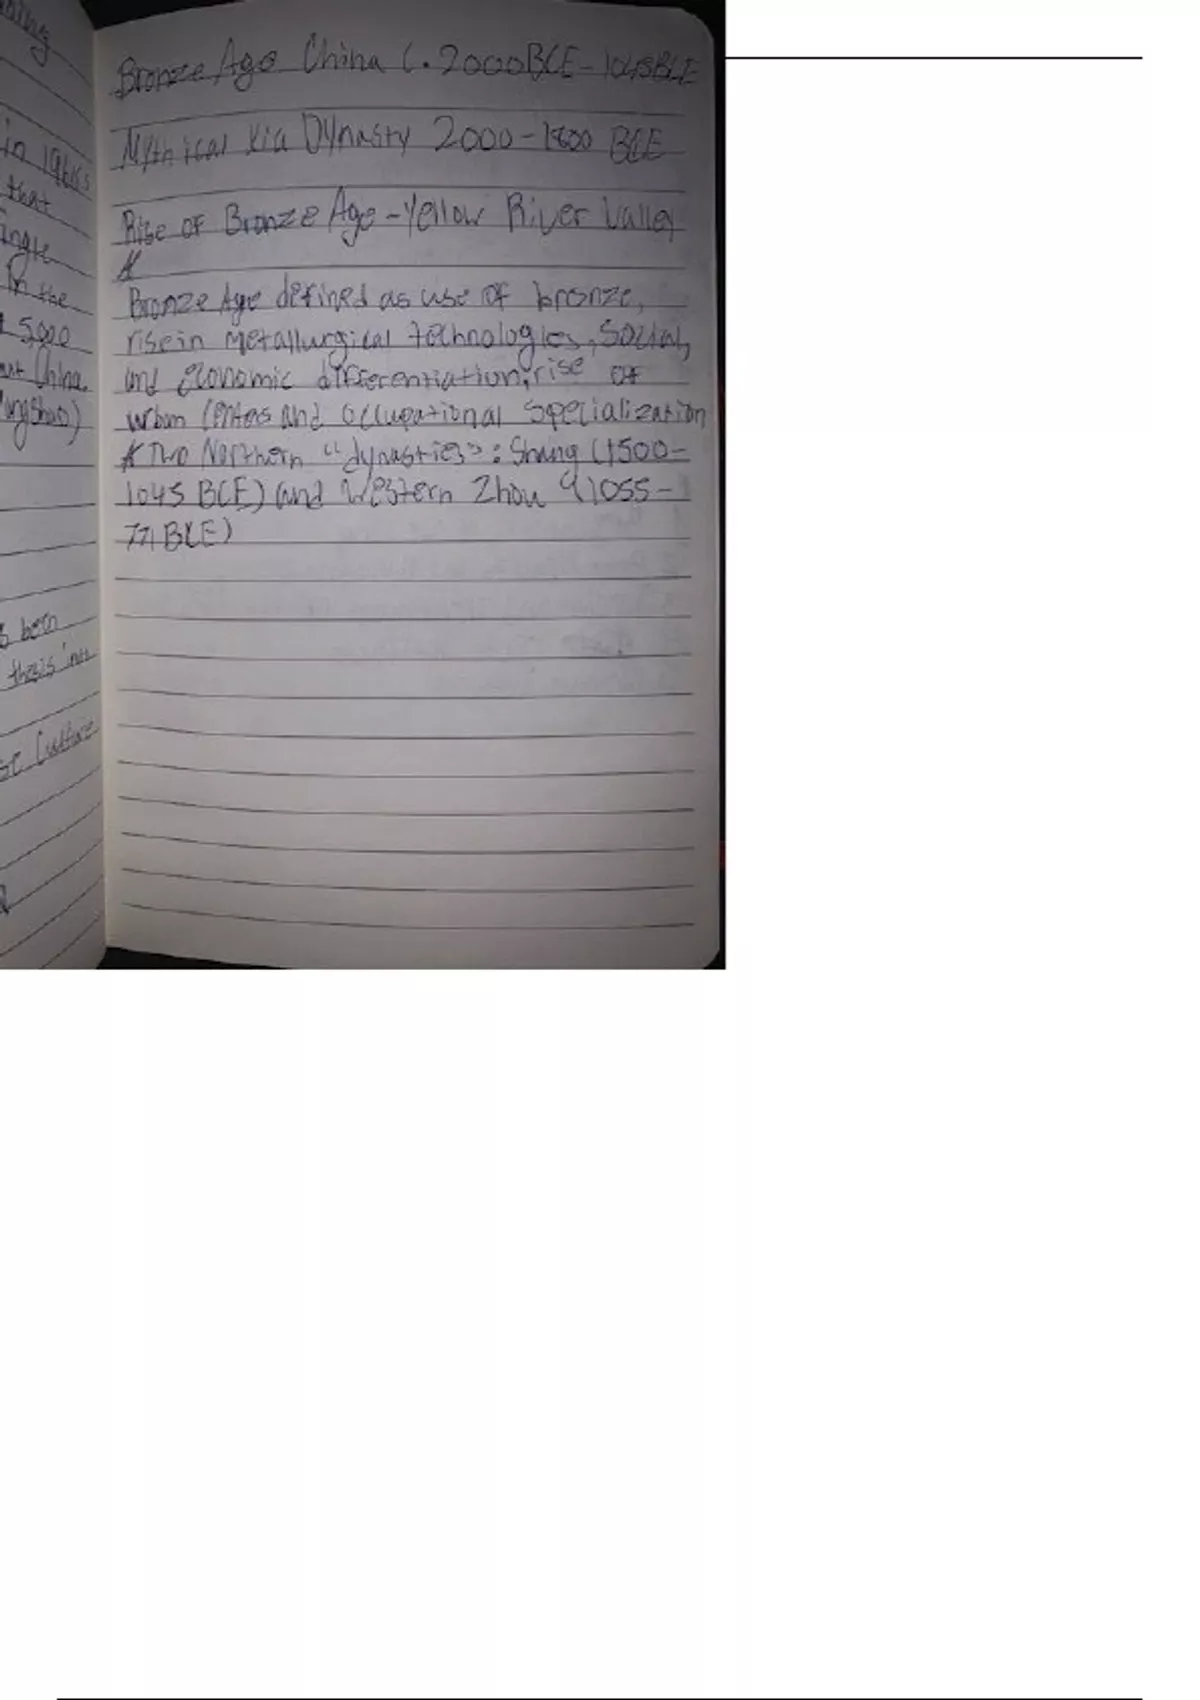 ning
in 1960s
that
ingle
in the
5,000
China.
Yangshao)
been
thesis into
Culture
Bronze Age China C. 2000BCE-1045BCE
Mythical Xia Dynasty 2000-1800 BCE
Rise of Bronze Age-Yellow River Valley
*
Bronze Age defined as use of bronze,
rise in metallurgical technologies, social,
and economic differentiation, rise of
urban centers and occupational specialization
* Two Northern "dynasties": Shang (1500-
1045 BCE) and Western Zhou (1055-
771 BCE)